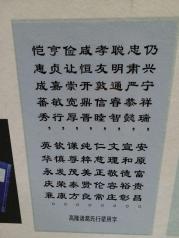 恺亨俭咸孝聪忠仍
惠贞让恒友明肃兴
成嘉崇开敦通严宁
蕃毓宽鼎信睿恭祥
秀行厚晋 智懿瑞
英钦谦纯仁文宣安
华慎尊粹慈理和
永发茂美正敬德富
庆荣泰贤伦容裕贵
康方良常庄彰昌